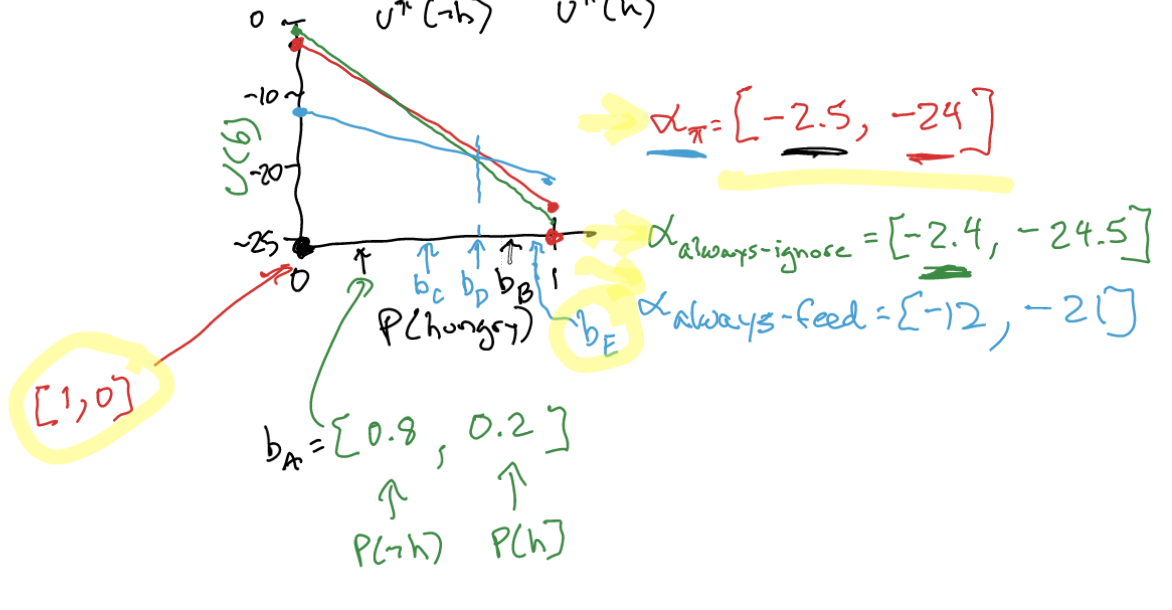 0 U^π(¬h) U^π(h)
-10
U(b)
-20
-25
0
b_C b_D b_B 1
P(hungry)
b_E
α_π = [-2.5, -24]
α_always-ignore = [-2.4, -24.5]
α_always-feed = [-12, -21]
[1,0]
b_A = [0.8, 0.2]
P(¬h) P(h]